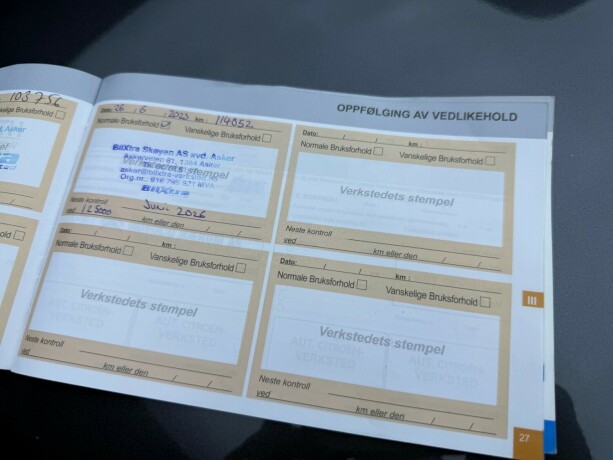 103756
OPPFØLGING AV VEDLIKEHOLD
Dato: 26 / 6 / 2025 km: 114052
Normale Bruksforhold Vanskelige Bruksforhold
BilXtra Skøyen AS avd. Asker
1384 Asker
Verkstedets stempel
Org.nr.: 916 795 921 MVA
BilXtra
Neste kontroll
ved 125000 km eller den Juni 2026
Dato: / / km:
Normale Bruksforhold Vanskelige Bruksforhold
Verkstedets stempel
Neste kontroll
ved km eller den / /
Dato: / / km:
Normale Bruksforhold Vanskelige Bruksforhold
Verkstedets stempel
Neste kontroll
ved km eller den / /
Dato: / / km:
Normale Bruksforhold Vanskelige Bruksforhold
Verkstedets stempel
AUT. CITROËN-
VERKSTED
Neste kontroll
ved km eller den / /
III
27